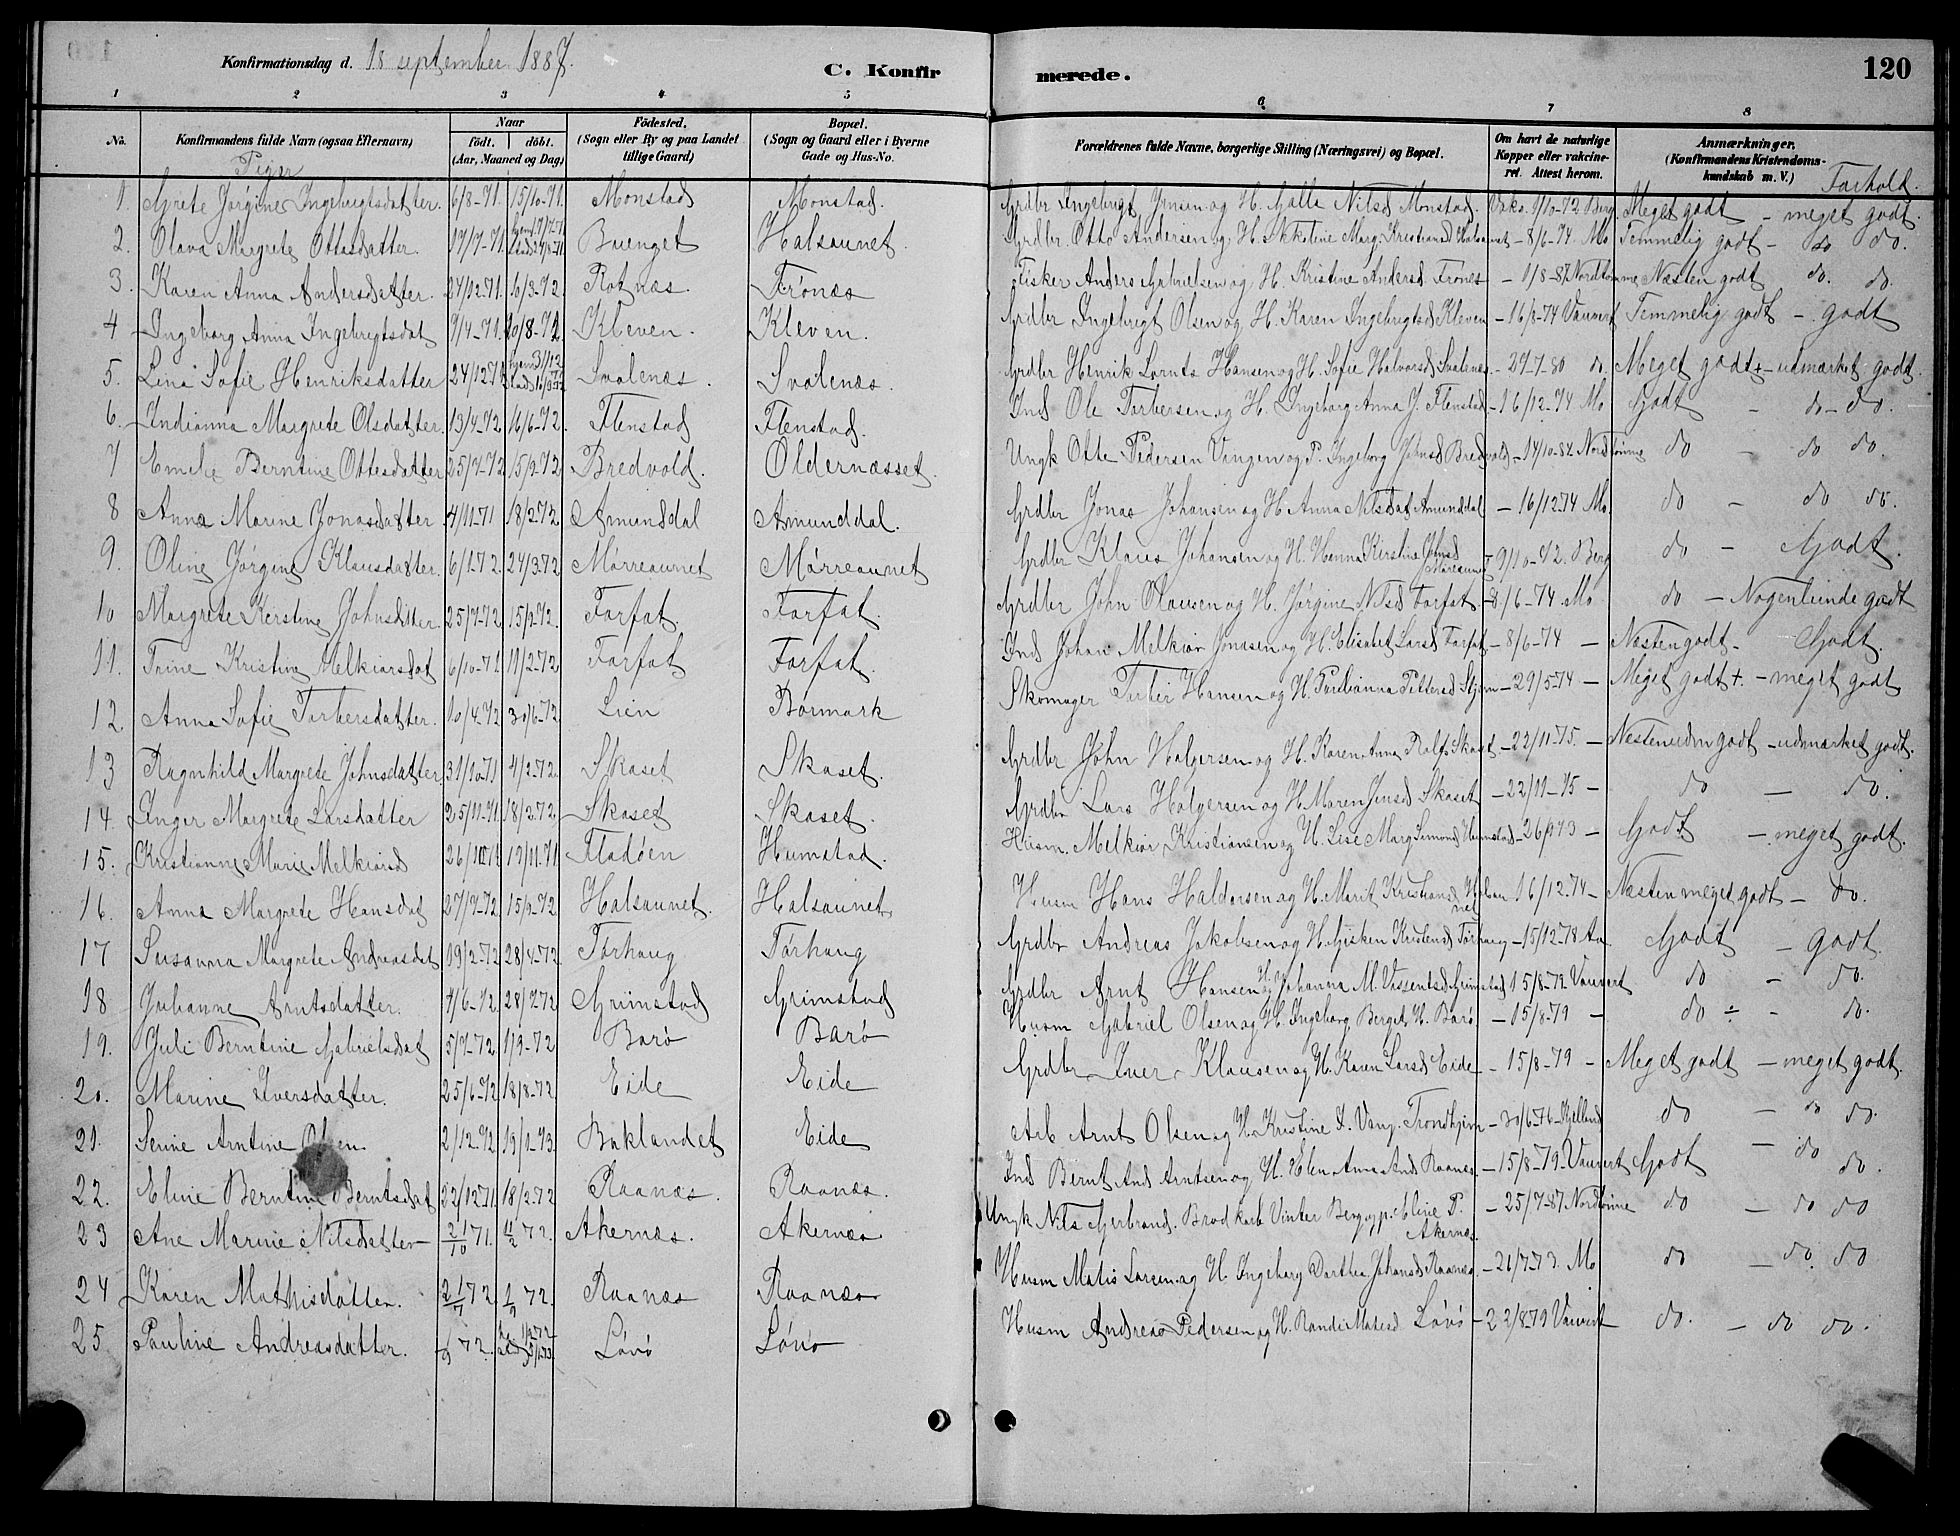 Konfirmationsdag d. 18 september 1887.
C. Konfirmerede.
120
1 2 3 4 5 6 7 8
No. | Konfirmandens fulde Navn (ogsaa Efternavn) | Naar födt. döbt. (Aar, Maaned og Dag) | Födested. (Sogn eller By og paa Landet tillige Gaard) | Bopæl. (Sogn og Gaard eller i Byerne Gade og Hus-No. | Forældrenes fulde Navne, borgerlige Stilling (Næringsvei) og Bopæl. | Om havt de naturlige Kopper eller vakcineret. Attest herom. | Anmærkninger. (Konfirmandens Kristendomskundskab m. V.)
Piger
Forhold.
1. Grete Jørgine Ingebrigtsdatter. 6/8-71. 15/10-71. Monstad Monstad. Grdbr Ingebrigt Jensen og H. Galla Nilsd Monstad. Vaks. 9/10-72 Berg. Meget godt - meget godt.
2. Olava Margrete Ottosdatter. 17/7-71. Buenget Halsaunet. Grdbr Otto Andersen og H. Marg. Kristiansd - 8/6-74. Mo Temmelig godt - do do.
3. Karen Anna Andersdatter. 24/12-71. 16/3-72. Rotnæs. Frönæs Fisker Anders Gabrielsen og H. Kristine Andersd. Frönes - 1/8-87 Nordtømme Næsten godt do. do.
4 Ingeborg Anna Ingebrigtsdat 9/4-71. 20/8-72. Kleven. Kleven. Grdbr Ingebrigt Olsen og H. Karen Ingebrigtsd Kleven - 16/8-74 Vauvert Temmelig godt - godt
5. Lina Sofie Henriksdatter 24/12 71. Svalenæs. Svalenæs. Grdbr Henrik Lornts Hansen og H. Sofie Halvorsd Svalenæs - 27-7-80 do. Meget godt + - udmærket godt.
6. Indianna Margrete Olsdatter. 13/4-72 16/6-72. Flenstad Flenstad. Ind Ole Torbersen og H. Ingeborg Anna J. Flenstad - 16/12-74 Mo Godt - do - do.
7 Emelie Berntine Ottesdatter 25/7-72 15/9 72 Bredvold. Oldernæsset. Ungk Otte Pedersen Vangen og P. Ingeborg Johnsd Bredvold - 14/10-82 Nordtømme do - do do.
8 Anna Marine Jonasdatter 4/11-71 18/2-72 Amunddal Amunddal. Grdbr Jonas Johansen og H Anna Nilsdat Amunddal - 16/12-74 Mo. do - do do.
9. Oline Jørgine Klausdatter. 6/1-72. 24/3-72 Mørreaunet Mørreaunet Grdbr Klaus Johansen og H. Henna Kirstine Johnsd Møreaunet - 9/10-72. Berg do - Godt.
10 Margrete Kerstine Johnsdatter. 25/7-72 15/9 72. Forfot. Forfot. Grdbr John Olausen og H. Jørgine Nilsd Forfot - 8/6-74 Mo do - Nogenlunde godt
11. Trine Kristine Melkiorsdat 6/10-71 11/2-72 Forfot Forfot. Ind Johan Melkior Jonasen og H. Elisabet Larsd Forfot - 8/6-74 - Næsten godt - Godt.
12. Anna Sofie Torbersdatter. 10/4-72 30/6-72. Lien Bormark Skomager Torber Hansen og H. Paulianna Pettersd - 29/5-74 - Meget godt +. - meget godt
13 Ragnhild Margrete Johnsdatter 31/10-71 4/2-72. Skaset Skaset. Grdbr John Holgersen og H. Karen Anna Rolfs Skaset - 22/11-75. - Næsten udm godt - udmærket godt.
14. Inger Margrete Larsdatter 25/11-71. 18/2-72. Skaset Skaset. Grdbr Lars Holgersen og H. Maren Jensd Skaset - 22/11-75 - do - do.
15. Kristianne Marie Melkiorsd 19/11-71 Fladöen Humstad. Husm. Melkior Kristiansen og H. Lise Marg Simond Humstad - Godt. - meget godt.
16. Anna Margrete Hansdat 27/7-72 15/9-72 Halsaunet. Halsaunet. Husm Hans Haldorsen og H. Marit Kristiansd Halsaunet 16/12-74 - Næsten meget godt - do.
17 Susanna Margrete Andreasdat 19/2-72 28/4-72. Tørhaug Tørhaug Grdbr Andreas Jakobsen og H. Gisken Kristensd Tørhaug - 15/12-78 Aa. Godt - godt.
18 Julianne Arntsdatter. 4/6-72 28/7-72 Grimstad Grimstad Grdbr Arnt Hansen og H Johanna M. Vissentsd Grimstad 15/8-79 Vauvert do - do.
19. Juli Berntine Gabrielsdat 5/7-72. 1/9-72 Barö Barö Husm Gabriel Olsen og H. Ingeborg Berget. H. Barö. - 15/8-79 - do ÷ - do.
20. Marine Iversdatter. 25/6-72 18/8-72 Eide Eide Grdbr Iver Klausen og H. Karen Larsd Eide - 15/8-79 - Meget godt - meget godt.
21. Serine Arntine Olsen 2/12-72 19/1-73. Baklandet Eide Arb Arnt Olsen og H. Kristine Vang. Trondhjem - 30/6-76 - Kjelland do - do do.
22. Eline Berntine Berntsdat 22/12-71. 18/2-72 Raanæs. Raanæs. Ind Bernt And Arntsen og H. Elen Anna And Raanæs. - 15/8-79. Vauvert Godt - do do.
23 Ane Marine Nilsdatter 21/10 71. 4/2 72. Akernæs. Akernæs Ungk Nils Gjerbrand. Brodkorb Vinter Berg og p. Eline P. Akernæs. - 25/7-87 Nordtømme do - do do
24 Karen Mathisdatter. 21/7 72. 1/9 72. Raanæs Raanæs Husm Matis Larsen og H. Ingeborg Dorthea Johansd Raanæs. - 21/7-73. Mo do - do. do
25 Pauline Andreasdatter. 72. Lövö Lövö Husm Andreas Pedersen og H. Randi Matisd Lövö - 22/8-79 Vauvert do. - do do.